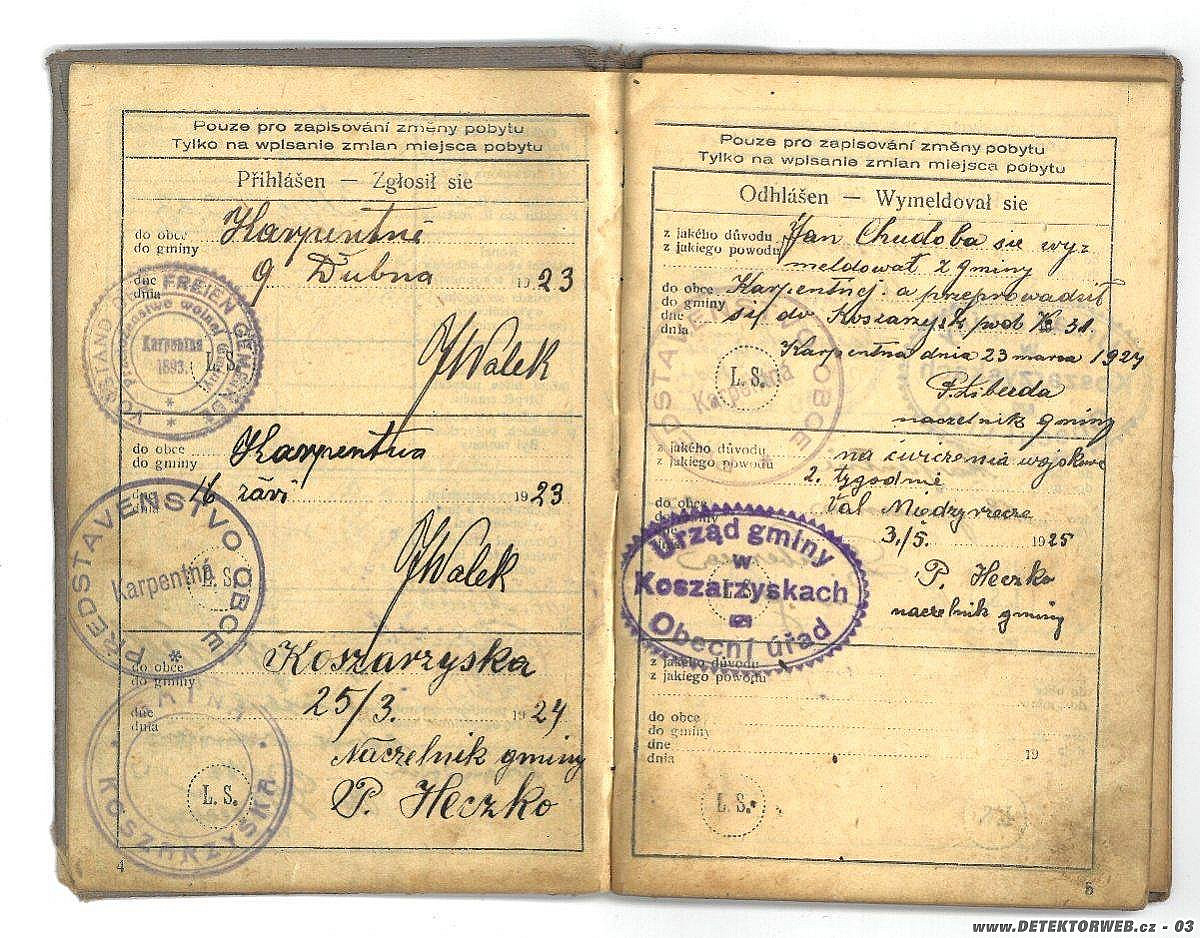 Pouze pro zapisování změny pobytu
Tylko na wpisanie zmian miejsca pobytu
Přihlášen — Zgłosił sie
do obce
do gminy Karpentné
dne
dnia 9 Dubna 1923
VORSTAND DER FREIEN GEMEINDE
Przełożeństwo wolnej Gminy
Karpentna
1893.
L. S.
JWalek
do obce
do gminy Karpentna
16 září 1923
PŘEDSTAVENSTVO OBCE
Karpentná
L. S.
JWalek
do obce
do gminy Koszarzyska
dne
dnia 25/3. 1924
Naczelnik gminy
P. Heczko
GMINY
KOSZARZYSKA
L. S.
4
Pouze pro zapisování změny pobytu
Tylko na wpisanie zmian miejsca pobytu
Odhlášen — Wymeldował sie
z jakého důvodu
z jakiego powodu Jan Chudoba się wy-
meldował z gminy
do obce
do gminy Karpentnej a przeprowadził
dne
dnia się do Koszarzysk pod No 31.
Karpentna dnia 23 marca 1924
L. S.
naczelnik gminy
PŘEDSTAVENSTVO OBCE
Karpentná
z jakého důvodu
z jakiego powodu na ćwiczenia wojskowe
2. tygodnie
do obce
do gminy Val Miedzyrzecze
3./5. 1925
P. Heczko
naczelnik gminy
Urząd gminy
w
Koszarzyskach
Obecní úřad
z jakého důvodu
z jakiego powodu
do obce
do gminy
dne
dnia 19
L. S.
5
www.DETEKTORWEB.cz - 03